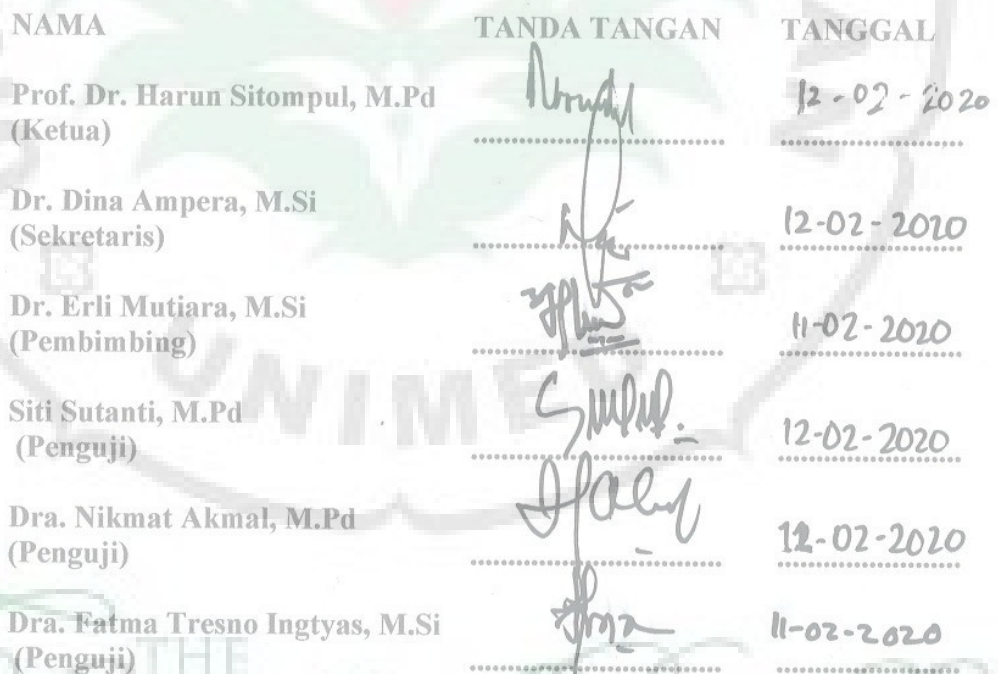 NAMA TANDA TANGAN TANGGAL
Prof. Dr. Harun Sitompul, M.Pd
(Ketua) 12-02-2020
Dr. Dina Ampera, M.Si
(Sekretaris) 12-02-2020
Dr. Erli Mutiara, M.Si
(Pembimbing) 11-02-2020
UNIMED
Siti Sutanti, M.Pd
(Penguji) 12-02-2020
Dra. Nikmat Akmal, M.Pd
(Penguji) 12-02-2020
Dra. Fatma Tresno Ingtyas, M.Si
(Penguji) 11-02-2020
THE